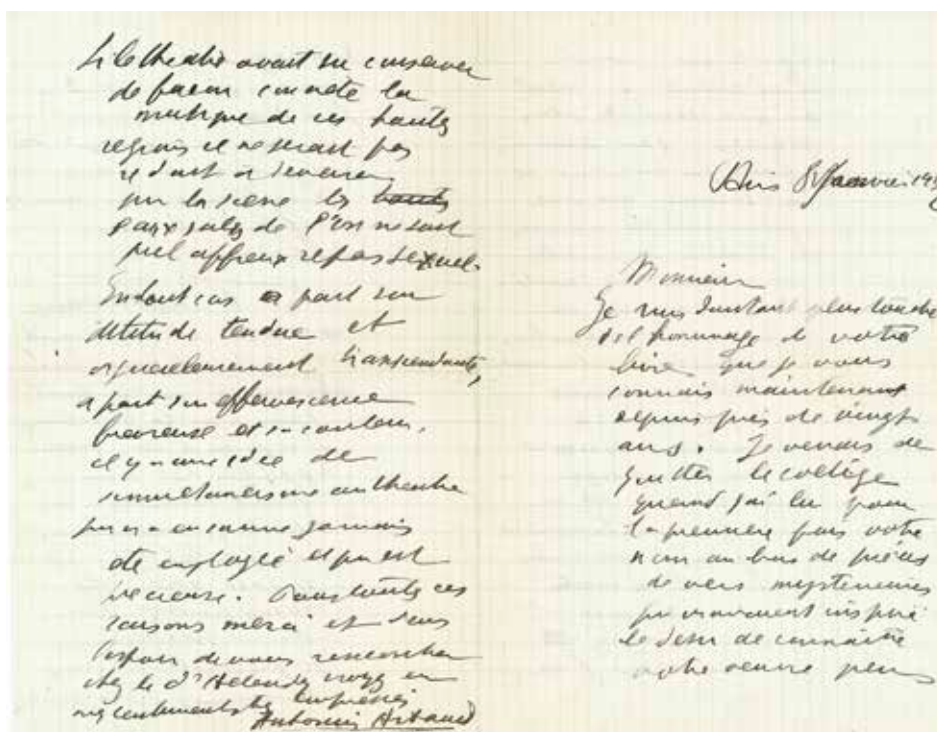 Si le théatre avait su conserver
de façon concrète la
musique de ces hautes
régions il ne serait pas
réduit à dévorer
sur la scène les
de l'on ne sait
quel affreux repas sexuel.
En tout cas à part son
attitude tendue et
orgueilleusement transcendante,
à part son effervescence
fievreuse et sa couleur,
il y a une idée de
simultanéisme au theatre
qui n'a encore jamais
été employée et qui est
précieuse. Pour toutes ces
raisons merci et dans
l'espoir de vous rencontrer
chez le Dr croyez en
mes sentiments
Antonin Artaud
Paris Janvier
Monsieur
Je suis d'autant plus touché
de l'hommage de votre
livre que je vous
connais maintenant
depuis près de vingt
ans. Je venais de
quitter le collège
quand j'ai lu pour
la première fois votre
nom au bas de pièces
de vers mystérieuses
qui m'avaient inspiré
le désir de connaître
votre oeuvre